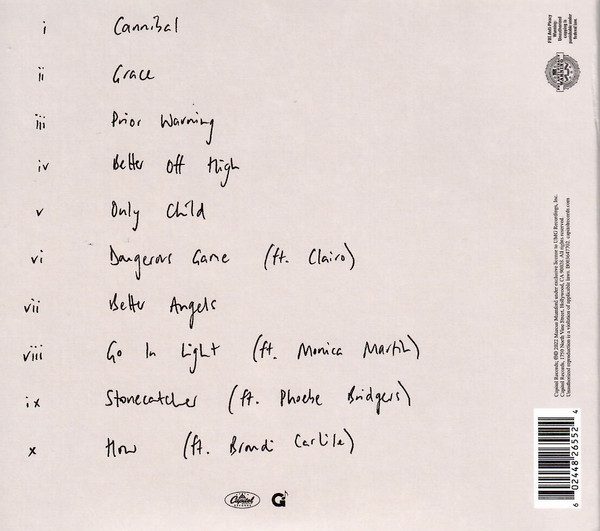 i Cannibal
ii Grace
iii Prior Warning
iv Better Off High
v Only Child
vi Dangerous Game (ft. Clairo)
vii Better Angels
viii Go In Light (ft. Monica Martin)
ix Stonecatcher (ft. Phoebe Bridgers)
x How (ft. Brandi Carlile)
Capitol
RECORDS
G
FBI Anti-Piracy
Warning:
Unauthorized
copying is
punishable under
federal law.
Capitol Records; ℗© 2022 Marcus Mumford under exclusive license to UMG Recordings, Inc.
Capitol Records, 1750 North Vine Street, Hollywood, CA 90028. All rights reserved.
Unauthorized reproduction is a violation of applicable laws. capitolrecords.com
6 02448 26552 4